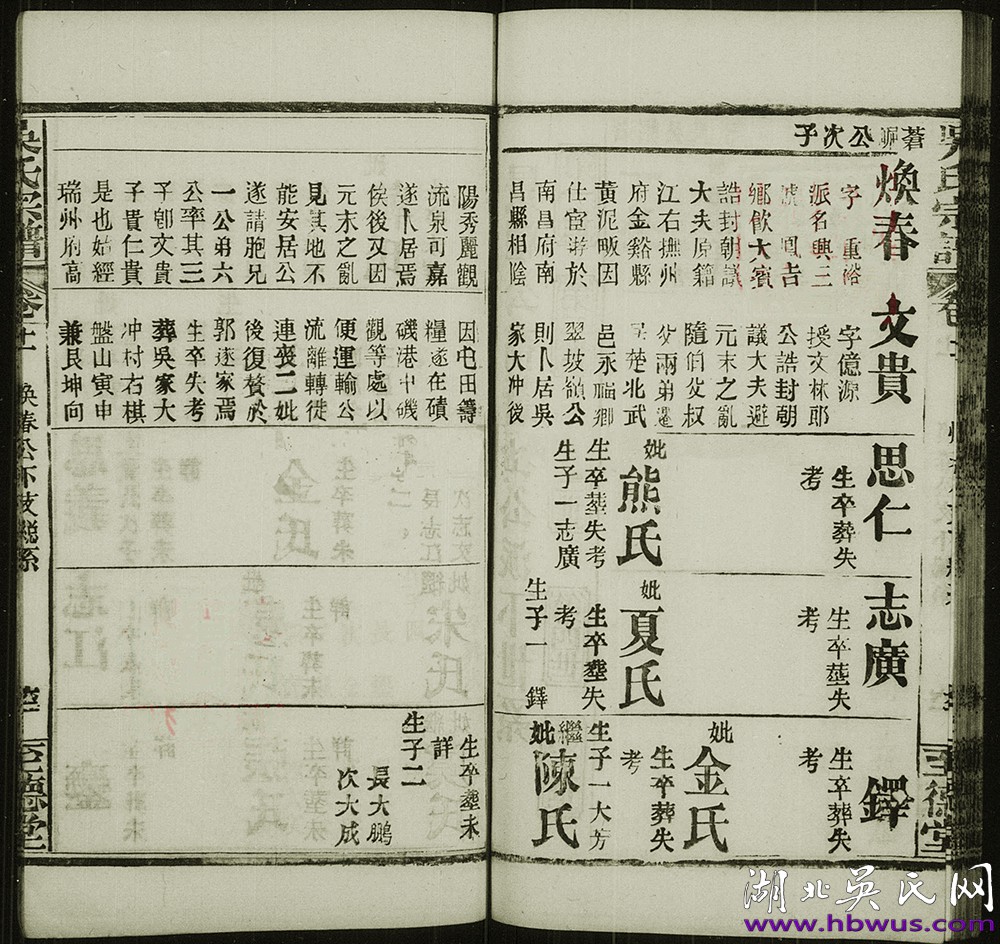 子次公
煥春
字 重裕
派名興三
鄉飲大賓
誥封朝議
大夫原籍
江右撫州
府金谿縣
黃泥畈因
仕宦游於
南昌府南
昌縣相陰
陽秀麗觀
流泉可嘉
遂卜居焉
俟後又因
元末之亂
見其地不
能安居公
遂請胞兄
一公弟六
公率其三
子卽文貴
子貴仁貴
是也始經
瑞州府高
文貴
字億源
授文林郎
公誥封朝
議大夫避
元末之亂
隨伯父叔
父兩弟遷
吳楚北武
邑永福鄉
翠坡嶺公
則卜居吳
家大冲後
因屯田籌
糧遂在磧
磯港中磯
觀等處以
便運輸公
流離轉徙
連喪二妣
後復贅於
郭遂家焉
生卒失考
葬吳家大
冲村右棋
盤山寅申
兼艮坤向
思仁
生卒葬失
考
妣
熊氏
生卒葬失考
生子一志廣
志廣
生卒塟失
考
妣
夏氏
生卒塟失
考
生子一 鐸
鐸
生卒葬失
考
妣
金氏
生卒葬失
考
生子一大芳
繼妣
陳氏
生卒塟未
詳
生子二
長大鵬
次大成
吳氏宗譜
卷十一
煥春公下支總系
至德堂
湖北吳氏网
www.hbwus.com